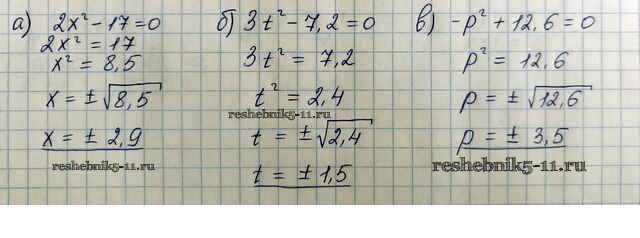 а) 2x² - 17 = 0
2x² = 17
x² = 8,5
x = ± √8,5
x = ± 2,9
reshebnik5-11.ru
б) 3t² - 7,2 = 0
3t² = 7,2
t² = 2,4
reshebnik5-11.ru
t = ± √2,4
t = ± 1,5
в) -p² + 12,6 = 0
p² = 12,6
p = ± √12,6
p = ± 3,5
reshebnik5-11.ru